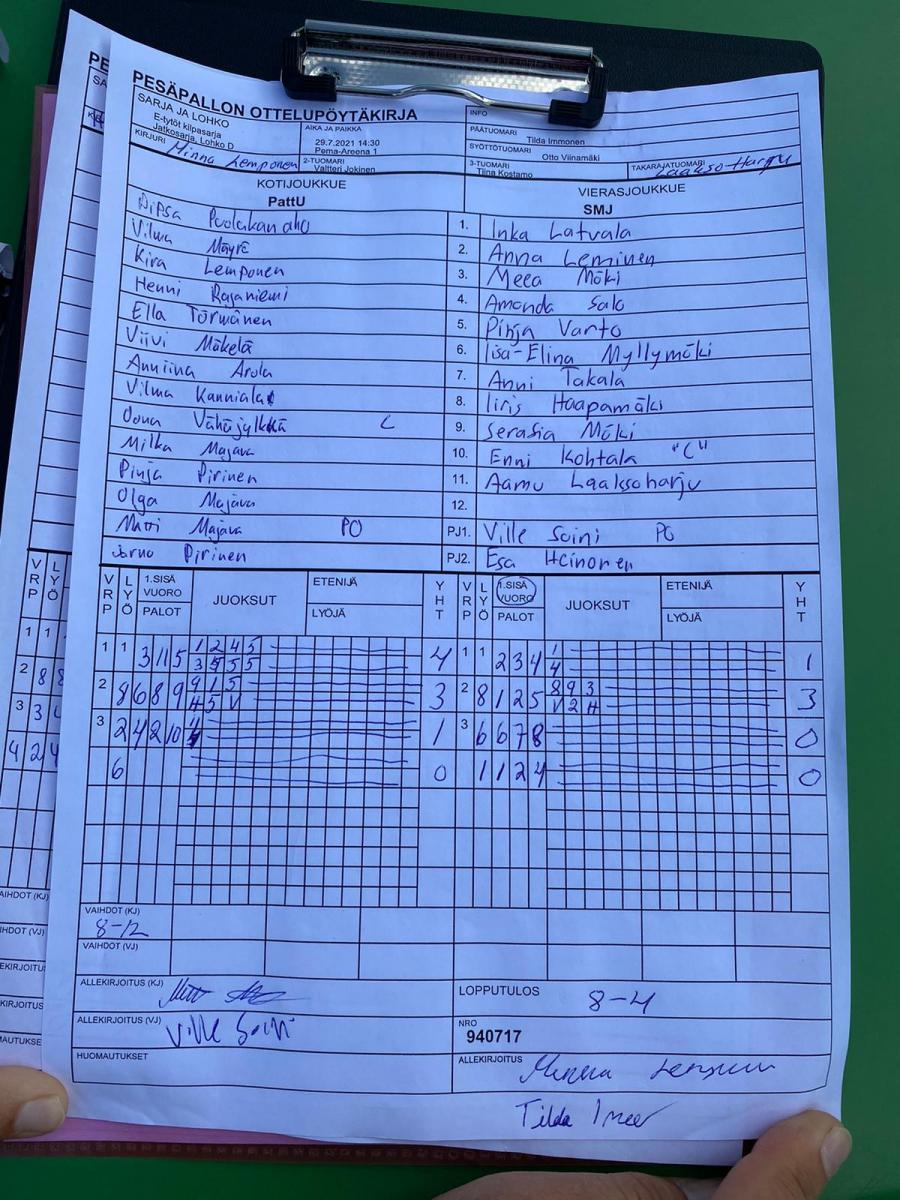 PESÄPALLON OTTELUPÖYTÄKIRJA
SARJA JA LOHKO
E-tytöt kilpasarja
Jatkosarja, Lohko D
AIKA JA PAIKKA
29.7.2021 14:30
Pema-Areena 1
INFO
PÄÄTUOMARI
Tilda Immonen
SYÖTTÖTUOMARI
Otto Viinamäki
KIRJURI
Minna Lemponen
2-TUOMARI
Valtteri Jokinen
3-TUOMARI
Tiina Kostamo
TAKARAJATUOMARI
Laakso-Harju
KOTIJOUKKUE
PattU
VIERASJOUKKUE
SMJ
Puolakanaho
1. Inka Latvala
Vilma Mäyrä
2. Anna Leminen
Kira Lemponen
3. Meea Mäki
Henni Rajaniemi
4. Amanda Salo
Ella Törmänen
5. Pinja Varto
Viivi Mäkelä
6. Iisa-Elina Myllymäki
Anniina Arola
7. Anni Takala
Vilma Kanniala
8. Iiris Haapamäki
Oona Vähäjylkkä C
9. Serafia Mäki
Milka Majava
10. Enni Kohtala "C"
Pinja Pirinen
11. Aamu Laaksoharju
Olga Majava
12.
Matti Majava PO
PJ1. Ville Soini PO
Jarno Pirinen
PJ2. Esa Heinonen
VRP LYÖ 1.SISÄ VUORO PALOT JUOKSUT ETENIJÄ LYÖJÄ YHT VRP LYÖ 1.SISÄ VUORO PALOT JUOKSUT ETENIJÄ LYÖJÄ YHT
1 1 3 11 5 1 2 4 5 4 1 1 2 3 4 1 1
3 5 5 5 4
2 8 6 8 9 9 1 5 3 2 8 1 2 5 8 9 3 3
H 5 V V 2 H
3 2 4 2 10 4 1 3 6 6 7 8 0
6 0 1 1 2 4 0
VAIHDOT (KJ)
8-12
VAIHDOT (VJ)
ALLEKIRJOITUS (KJ)
LOPPUTULOS
8-4
ALLEKIRJOITUS (VJ)
Ville Soini
NRO
940717
HUOMAUTUKSET
ALLEKIRJOITUS
Minna Lemponen
Tilda